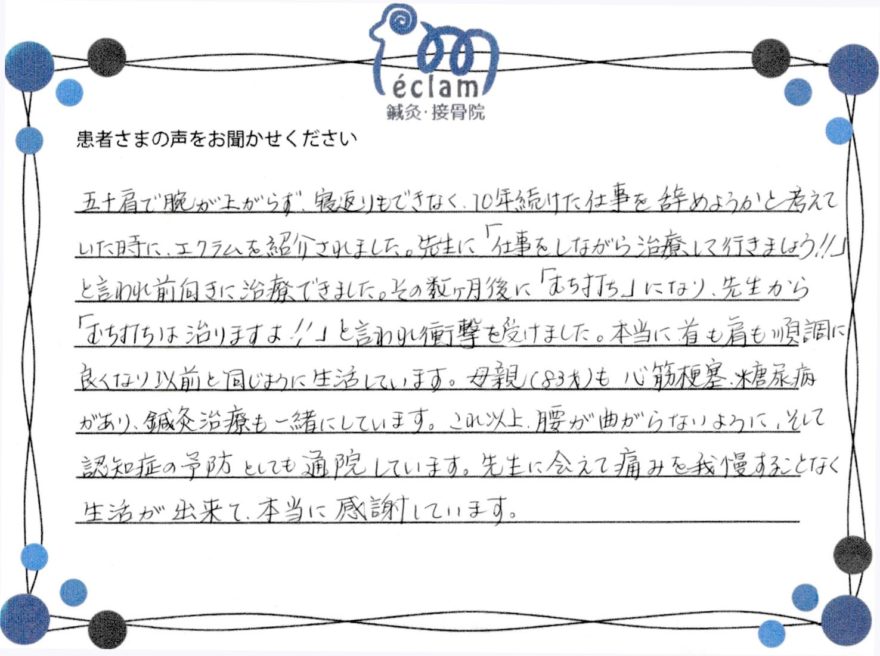 éclam
鍼灸・接骨院
患者さまの声をお聞かせください
五十肩で腕が上がらず、寝返りもできなく、10年続けた仕事を辞めようかと考えて
いた時に、エクラムを紹介されました。先生に「仕事をしながら治療して行きましょう!!」
と言われ前向きに治療できました。その数ヶ月後に「むち打ち」になり、先生から
「むち打ちは治りますよ!!」と言われ衝撃を受けました。本当に首も肩も順調に
良くなり以前と同じように生活しています。母親(83才)も心筋梗塞、糖尿病
があり、鍼灸治療も一緒にしています。これ以上、腰が曲がらないように、そして
認知症の予防としても通院しています。先生に会えて痛みを我慢することなく
生活が出来て、本当に感謝しています。